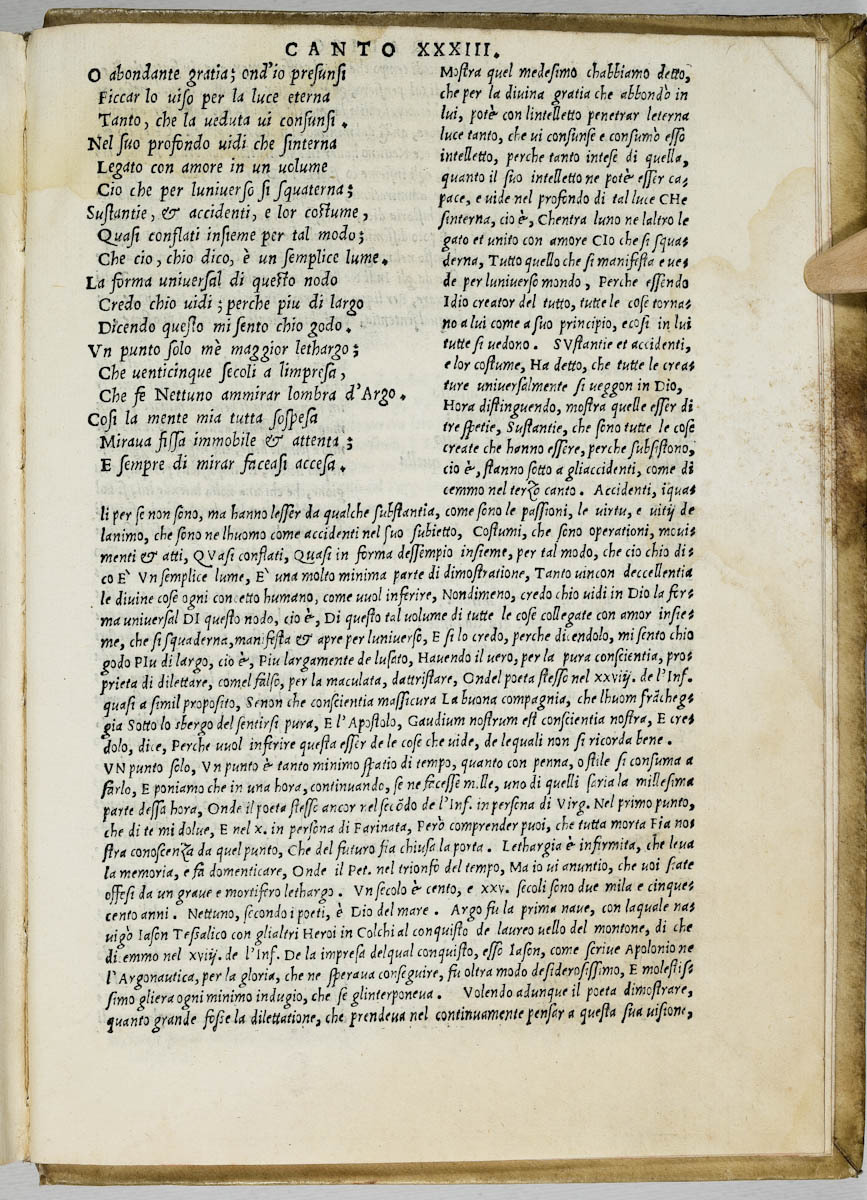 CANTO XXXIII.
O abondante gratia; ond'io presunsi
Ficcar lo uiso per la luce eterna
Tanto, che la ueduta ui consunsi.
Nel suo profondo uidi che sinterna
Legato con amore in un uolume
Cio che per luniuerso si squaterna;
Sustantie, & accidenti, e lor costume,
Quasi conflati insieme per tal modo;
Che cio, chio dico, è un semplice lume.
La forma uniuersal di questo nodo
Credo chio uidi; perche piu di largo
Dicendo questo mi sento chio godo.
Vn punto solo mè maggior lethargo;
Che uenticinque secoli a limpresa,
Che fe Nettuno ammirar lombra d'Argo.
Cosi la mente mia tutta sospesa
Miraua fissa immobile & attenta;
E sempre di mirar faceasi accesa.
Mostra quel medesimo chabbiamo detto,
che per la diuina gratia che abbondò in
lui, potè con lintelletto penetrar leterna
luce tanto, che ui consunse e consumò esso
intelletto, perche tanto intese di quella,
quanto il suo intelletto ne potè esser ca-
pace, e uide nel profondo di tal luce CHe
sinterna, cio è, Chentra luno ne laltro le
gato et unito con amore CIo che si squa-
derna, Tutto quello che si manifesta e ue-
de per luniuerso mondo, Perche essendo
Idio creator del tutto, tutte le cose torna-
no a lui come a suo principio, e cosi in lui
tutte si uedono. SVstantie et accidenti,
e lor costume, Ha detto, che tutte le crea-
ture uniuersalmente si ueggon in Dio,
Hora distinguendo, mostra quelle esser di
tre spetie, Sustantie, che sono tutte le cose
create che hanno essere, perche subsistono,
cio è, stanno sotto a gliaccidenti, come di
cemmo nel terzo canto. Accidenti, iqua-
li per se non sono, ma hanno lesser da qualche substantia, come sono le passioni, le uirtu, e uitij de
lanimo, che sono ne lhuomo come accidenti nel suo subietto, Costumi, che sono operationi, moui-
menti & atti, QVasi conflati, Quasi in forma dessempio insieme, per tal modo, che cio chio di-
co E' Vn semplice lume, E' una molto minima parte di dimostratione, Tanto uincon deccellentia
le diuine cose ogni concetto humano, come uuol inferire, Nondimeno, credo chio uidi in Dio la for-
ma uniuersal DI questo nodo, cio è, Di questo tal uolume di tutte le cose collegate con amor insie-
me, che si squaderna, manifesta & apre per luniuerso, E si lo credo, perche dicendolo, mi sento chio
godo PIu di largo, cio è, Piu largamente de lusato, Hauendo il uero, per la pura conscientia, pro-
prieta di dilettare, comel falso, per la maculata, dattristare, Ondel poeta stesso nel xxviij. de l'Inf.
quasi a simil proposito, Se non che conscientia massicura La buona compagnia, che lhuom frācheg-
gia Sotto lo sbergo del sentirsi pura, E l'Apostolo, Gaudium nostrum est conscientia nostra, E cre-
dolo, dice, Perche uuol inferire questa esser de le cose che uide, de lequali non si ricorda bene.
VN punto solo, Vn punto è tanto minimo spatio di tempo, quanto con penna, o stile si consuma a
farlo, E poniamo che in una hora, continuando, se ne facesse mille, uno di quelli saria la millesima
parte dessa hora, Onde il poeta stesso ancor nel secōdo de l'Inf. in persona di Virg. Nel primo punto,
che di te mi dolue, E nel x. in persona di Farinata, Però comprender puoi, che tutta morta Fia no-
stra conoscenza da quel punto, Che del futuro fia chiusa la porta. Lethargia è infirmita, che leua
la memoria, e fa domenticare, Onde il Pet. nel trionfo del tempo, Ma io ui anuntio, che uoi siate
offesi da un graue e mortifero lethargo. Vn secolo è cento, e xxv. secoli sono due mila e cinque-
cento anni. Nettuno, secondo i poeti, è Dio del mare. Argo fu la prima naue, con laquale na-
uigò Iason Tessalico con glialtri Heroi in Colchi al conquisto de laureo uello del montone, di che
dicemmo nel xviij. de l'Inf. De la impresa delqual conquisto, esso Iason, come scriue Apolonio ne
l'Argonautica, per la gloria, che ne speraua conseguire, fu oltra modo desiderosissimo, E molestis-
simo gliera ogni minimo indugio, che se glinterponeua. Volendo adunque il poeta dimostrare,
quanto grande fosse la dilettatione, che prendeua nel continuamente pensar a questa sua uisione,